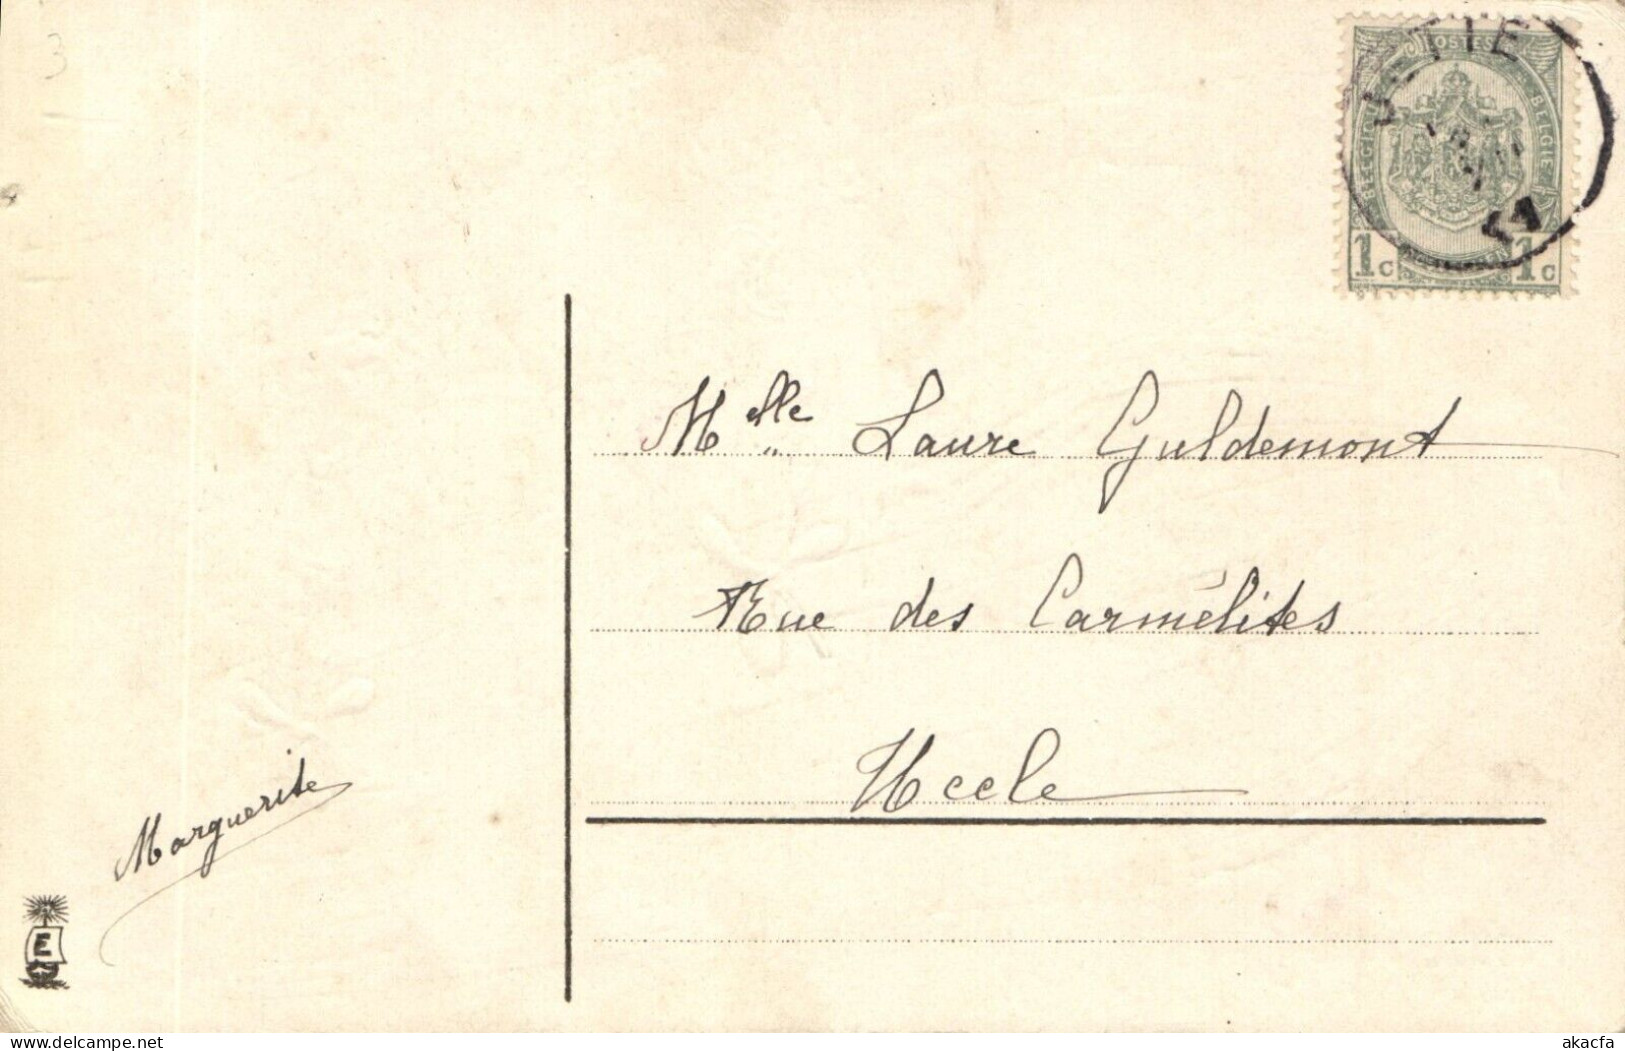 3
POSTES
BELGIQUE
BELGIE
1c
1c
Melle Laure Guldemont
Rue des Carmélites
Uccle
Marguerite
E
www.delcampe.net
akacfa